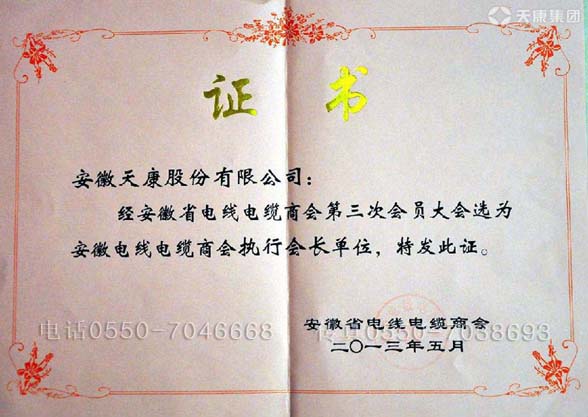 天康集团
证 书
安徽天康股份有限公司：
经安徽省电线电缆商会第三次会员大会选为
安徽电线电缆商会执行会长单位，特发此证。
安徽省电线电缆商会
电话0550-7046668 传真0550-7038693
二〇一三年五月